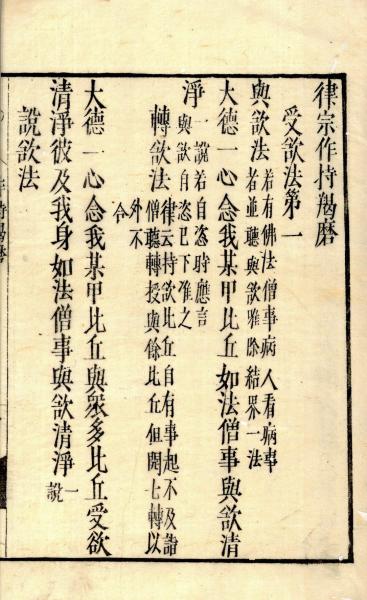 律宗作持羯磨
受欲法第一
與欲法 若有佛法僧事病人看病事
者並聽與欲唯除結界一法
大德一心念我某甲比丘如法僧事與欲清
淨 一說若自恣時應言
與欲自恣已下準之
轉欲法 律云持欲比丘自有事起不及詣
僧聽轉授與餘比丘但開七轉以
外不
合
大德一心念我某甲比丘與眾多比丘受欲
清淨彼及我身如法僧事與欲清淨 一說
說欲法